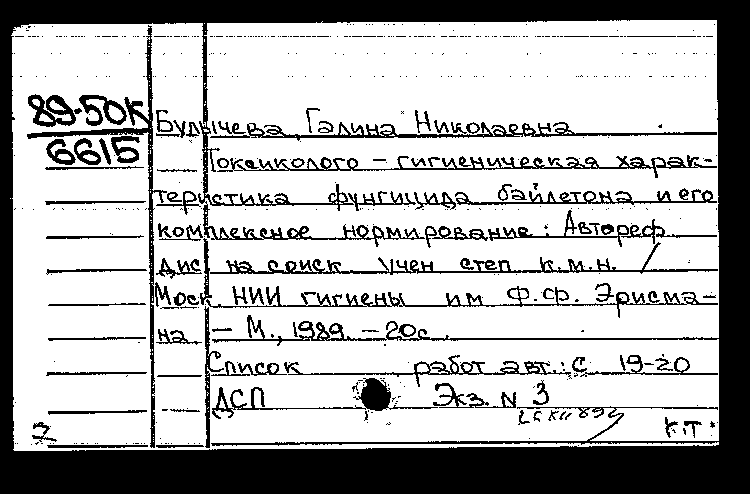 89-50К
6615
Булычева, Галина Николаевна
Токсиколого-гигиеническая харак-
теристика фунгицида байлетона и его
комплексное нормирование: Автореф
дис на соиск учен степ к.м.н. /
Моск НИИ гигиены им Ф.Ф. Эрисма-
на. — М., 1989. — 20с.
Список работ авт.: с 19-20
ДСП Экз. N 3
К.Т.